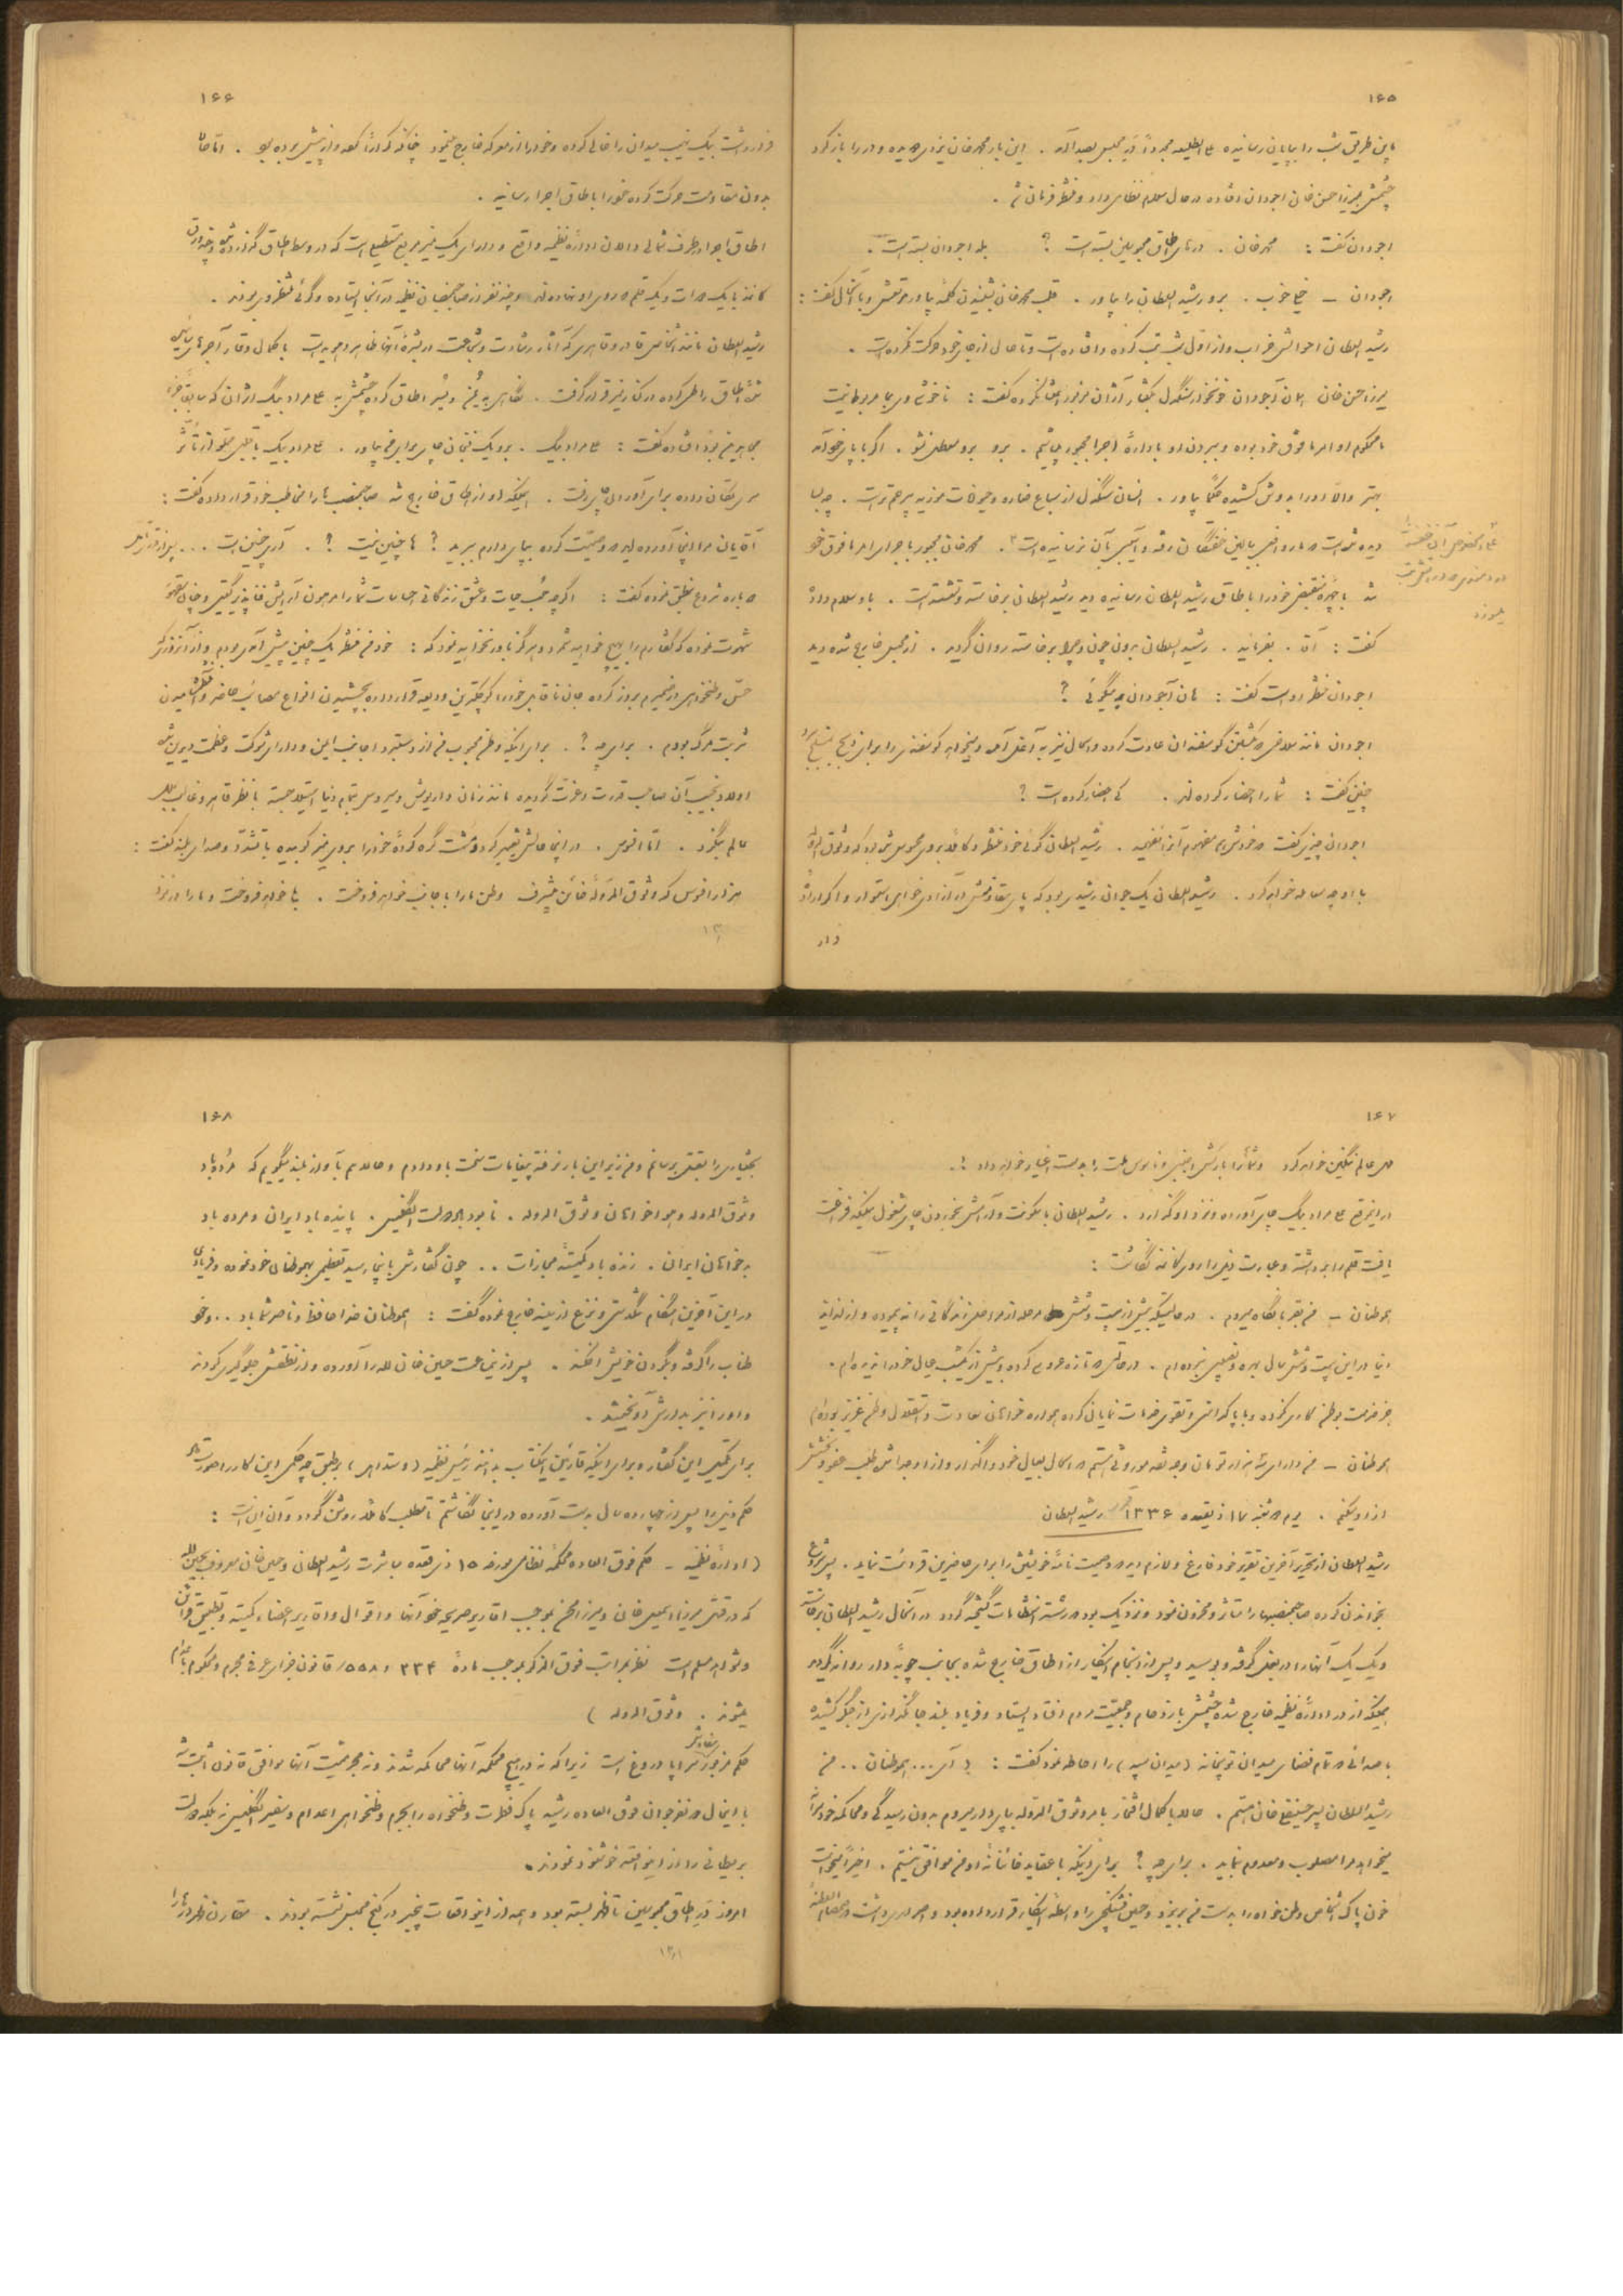 ۱۶۵
باین طریق شب را بپایان رسانیده علی الطلیعه مجدداً در محبس بصدا آمد . این بار محمدخان یزدی دویده و در را باز کرد
چشمش بمیرزا حسن خان اجودان افتاده در حال سلام نظامی داد و منتظر فرمان شد .
اجودان گفت : محمدخان . درهای اطاق محبوسین بسته است ؟ بله اجودان بسته است .
اجودان – خیلی خوب . برو رشیدالسلطان را بیاور . قلب محمدخان بشنیدن کلمهٔ بیاور مرتعش و با آنحال گفت :
رشیدالسلطان احوالش خراب و از اول شب تب کرده و افتاده است و تا حال از جای خود حرکت نکرده است .
میرزا حسن خان همان آجودان خونخوار سنگدل بکفتار آژان مزبور اعتنا نکرده گفت : ناخوشی وی بما مربوط نیست
ما محکوم اوامر مافوق خود بوده و ببردن او باداره اجرا مجبور میباشیم . برو برو معطل نشو . اگر با پای خود آمد
بهتر والا او را بدوش کشیده حکماً بیاور . انسان سنگدل از سباع ضاره و حیوانات موذیه بیرحم تر است . چه بسا
دیده شده است که مار و افعی ببالین خفتگان رفته و آسیبی بآن نرسانیده است . محمدخان مجبور باجرای امر مافوق خود
شد با چهره منقبض خود را باطاق رشیدالسلطان رسانیده دید رشیدالسلطان برخاسته و نشسته است . باو سلام داده
گفت : آقا . بفرمائید . رشیدالسلطان بدون چون و چرا برخاسته روان گردید . از محبس خارج شده دید
اجودان منتظر او است گفت : هان آجودان چه میگوئی ؟
اجودان مانند سلاخی که بکشتن گوسفندان عادت کرده و الحال نیز به آغل آمده و میخواهد گوسفندی را برای ذبح بمسلخ برد
چنین گفت : شما را احضار کرده اند . کی احضار کرده است ؟
اجودان چیزی گفت که خودش هم مفهوم آنرا نفهمید . رشیدالسلطان گوئی خود منتظر و کاملاً بر وی محسوس شده بود که وثوق الدوله
با او چه معامله خواهد کرد . رشیدالسلطان یک جوان رشیدی بود که پای مقاومتش در آزادی خواهی استوار و اگر اراده
فرار
۱۶۶
فرار داشت بیک نهیب میدان را خالی کرده و خود را از معرکه خارج مینمود چنانکه کراراً این کار را از پیش برده بود . اما حالا
بدون مقاومت حرکت کرده خود را باطاق اجرا رسانید .
اطاق اجرا در طرف شمالی دالان ادارهٔ نظمیه واقع و دارای یک میز مربع مستطیلی است که در وسط اطاق گذارده شده و چند ورق
کاغذ با یک دوات و یک قلم در روی او نهاده اند و چند نفر از صاحبمنصبان نظمیه در آنجا ایستاده و گوئی منتظر وی بودند .
رشیدالسلطان مانند اشخاص قادر و قاهری که آثار رشادت و شجاعت در بشرهٔ آنها ظاهر و هویداست با کمال وقار آجرهای
اطاق را طی کرده در کنار میز قرار گرفت . نگاهی به یمین و یسار اطاق کرده چشمش به علی مراد بیگ آژان که سابقاً جزو
مجاهدین بود افتاده گفت : علی مراد بیگ . برو یک فنجان چای برای من بیاور . علی مراد بیک با قلبی مملو از تأثر
سری تکان داده برای آوردن چای رفت . همینکه او از اطاق خارج شد صاحبمنصب ها را مخاطب خود قرار داده گفت :
آقایان مرا اینجا آورده اید که وصیت کرده بپای دارم ببرید ؟ ها چنین نیست ؟ . آری چنین است . . .
دوباره شروع بنطق نموده گفت : اگرچه حب حیات و عشق زندگانی احساسات شما را
شهرت نموده که گفتارم را هیچ خواهید شمرد و هرگز باور نخواهید نمود که : خود من منتظر یک چنین پیش آمدی بودم و از آنروز که
حس وطنخواهی در ضمیرم بروز کرده جان ناقابل خود را کوچکترین ودیعه قرار داده بچشیدن انواع مصائب حاضر و آشامیدن
شربت مرگ بودم . برای چه ؟ . برای اینکه وطن محبوب من از دستبرد اجانب ایمن و دارای شوکت و عظمت دیرین شده
اولاد نجیب آن صاحب قدرت و عزت گردیده مانند زمان داریوش و سیروس بتمام دنیا استیلا جسته با نظر قاهر و غالب بملل
عالم بنگرد . اما افسوس . در اینجا حالش تغییر کرد و مشت گره کردهٔ خود را بروی میز کوبیده با تشدد و صدای بلند گفت :
هزار افسوس که وثوق الدولهٔ خائن بیشرف وطن ما را باجانب خواهد فروخت . بله خواهد فروخت و ما را در نزد
۱۶۷
ملل عالم ننگین خواهد کرد و شما را بارکش اجنبی و ناموس ملت را بدست اغیار خواهد داد !..
در این موقع علی مراد بیگ چای آورده و نزد او گذارد . رشیدالسلطان با سکونت و آرامش بخوردن چای مشغول همینکه فراغت
یافت قلم را برداشته و عبارت ذیل را روی کاغذ نگاشت :
هموطنان – من بقربانگاه میروم . در حالتیکه بیش از بیست و شش مرحله از مراحل زندگانی را نه پیموده و از لذاید
دنیا در این بیست و شش سال بهره و نصیبی نبرده ام . در حالتی که تازه عروسی کرده و بیش از یکشب عیال خود را ندیده ام .
جز خدمت بوطن کاری نکرده و با پاکدامنی و تقوی خدمات نمایانی کرده همواره خواهان سعادت و استقلال وطن عزیز بوده ام
هموطنان – من دارای سه هزار تومان وجه نقد موروثی هستم که الحال بعیال خود واگذار و از او جداً طلب عفو و بخشش
از او میکنم . یوم دوشنبه ۱۷ ذیقعده ۱۳۳۶ رشیدالسلطان
رشیدالسلطان از تحریر آخرین تقریر خود فارغ و لازم دید که وصیت نامهٔ خویش را برای حاضرین قرائت نماید . پس شروع
بخواندن کرده صاحبمنصبها را متأثر و محزون نمود و نزدیک بود که رشته انتظامات گسیخته گردد در آنحال رشیدالسلطان برخاسته
و یک یک آنها را در بغل گرفته و بوسید و پس از انجام اینکار از اطاق خارج شده بجانب چوبهٔ دار روانه گردید
همینکه از در ادارهٔ نظمیه خارج شده چشمش بازدحام و جمعیت مردم افتاد ایستاد و فریاد بلند جانگدازی از جگر کشیده
با صدائی که تمام فضای میدان توپخانه (میدان سپه) را احاطه نمود گفت : ای . . . هموطنان . . من
رشیدالسلطان پسر حسینقلی خان هستم . حالا با کمال افتخار بامر وثوق الدوله بپای دار میروم بدون رسیدگی و محاکمه خود سرانه
میخواهد مرا مصلوب و معدوم نماید . برای چه ؟ برای اینکه با عقاید خائنانه او من موافق نیستم . اخیراً میخواست
خون پاک اشخاص وطن خواه را بدست من بریزد و حسین فشنگچی را واسطه اینکار قرار داده بود
۱۶۸
بختیاری را بقتل برسانم و من زیر این بار نرفته پیغامات سخت باو دادم و حالا هم بآواز بلند میگویم که مرده باد
وثوق الدوله و هواخواهان وثوق الدوله . نابود باد دولت انگلیس . پاینده باد ایران و مرده باد
بدخواهان ایران . زنده باد کمیتهٔ مجازات . . چون گفتارش باینجا رسید تعظیمی بهموطنان خود نموده و فریادی
در این آخرین هنگام تنگدستی و نزع از سینه خارج نموده گفت : هموطنان خدا حافظ و ناصر شما باد . . و خود
طناب را گرفته و بگردن خویش افکند . پس از نیمساعت حسین خان لله را آورده و از نطقش جلوگیری کردند
و او را نیز بدار آویختند .
برای تکمیل این گفتار و برای اینکه قارئین این کتاب بدانند رئیس نظمیه (وستداهل) بر طبق چه حکمی این کار را صورت داد
حکم ذیل را پس از چهارده سال بدست آورده در اینجا نگاشتم تا مطلب کاملاً روشن گردد و آن این است :
(ادارهٔ نظمیه – حکم فوق العاده محکمهٔ نظامی مورخه ۱۵ ذی قعده مباشرت رشیدالسلطان و حسین خان معروف بحسین لله
که در قتل میرزا اسمعیل خان و میرزا محسن بموجب اقاریر صریحه خود آنها و اقوال و اقاریر اعضاء کمیته و تطبیق قرائن
و شواهد مسلم است نظر بمراتب فوق الذکر بموجب مادهٔ ۳۳۴ و ۵۵۸ قانون جزای عرفی مجرم و محکوم باعدام
میشوند . وثوق الدوله )
حکم مزبور سراپا دروغ است زیرا که نه در هیچ محکمه آنها محاکمه شدند و نه مجرمیت آنها موافق قانون ثابت شد
با اینحال دو نفر جوان فوق العاده رشید پاک فطرت وطنخواه را بجرم وطنخواهی اعدام و سفیر انگلیس نه بلکه دولت
بریطانی را از این واقعه خوشنود نمودند .
امروز در اطاق محبوسین تا ظهر بسته بود و همه از این واقعات بیخبر در کنج محبس نشسته بودند . مقارن ظهر درها را